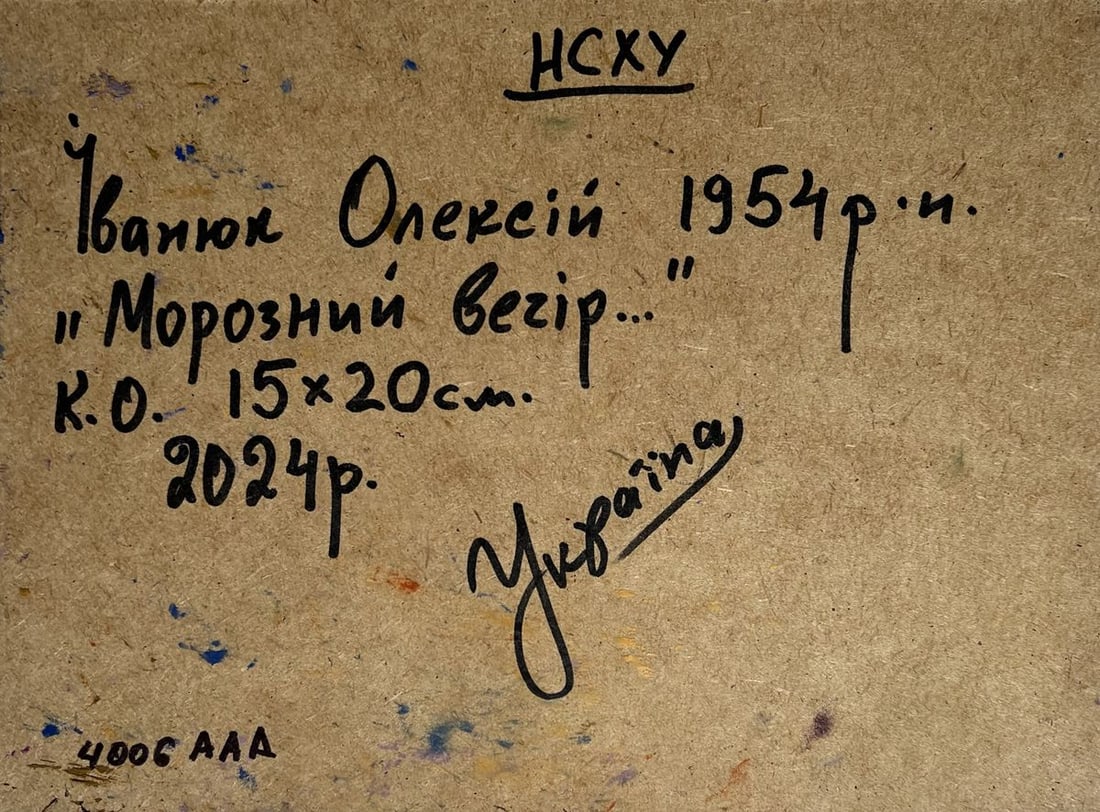 НСХУ
Іванюк Олексій 1954р.н.
„Морозний вечір..."
К.О. 15×20см.
2024р.
Україна
4006 ААА